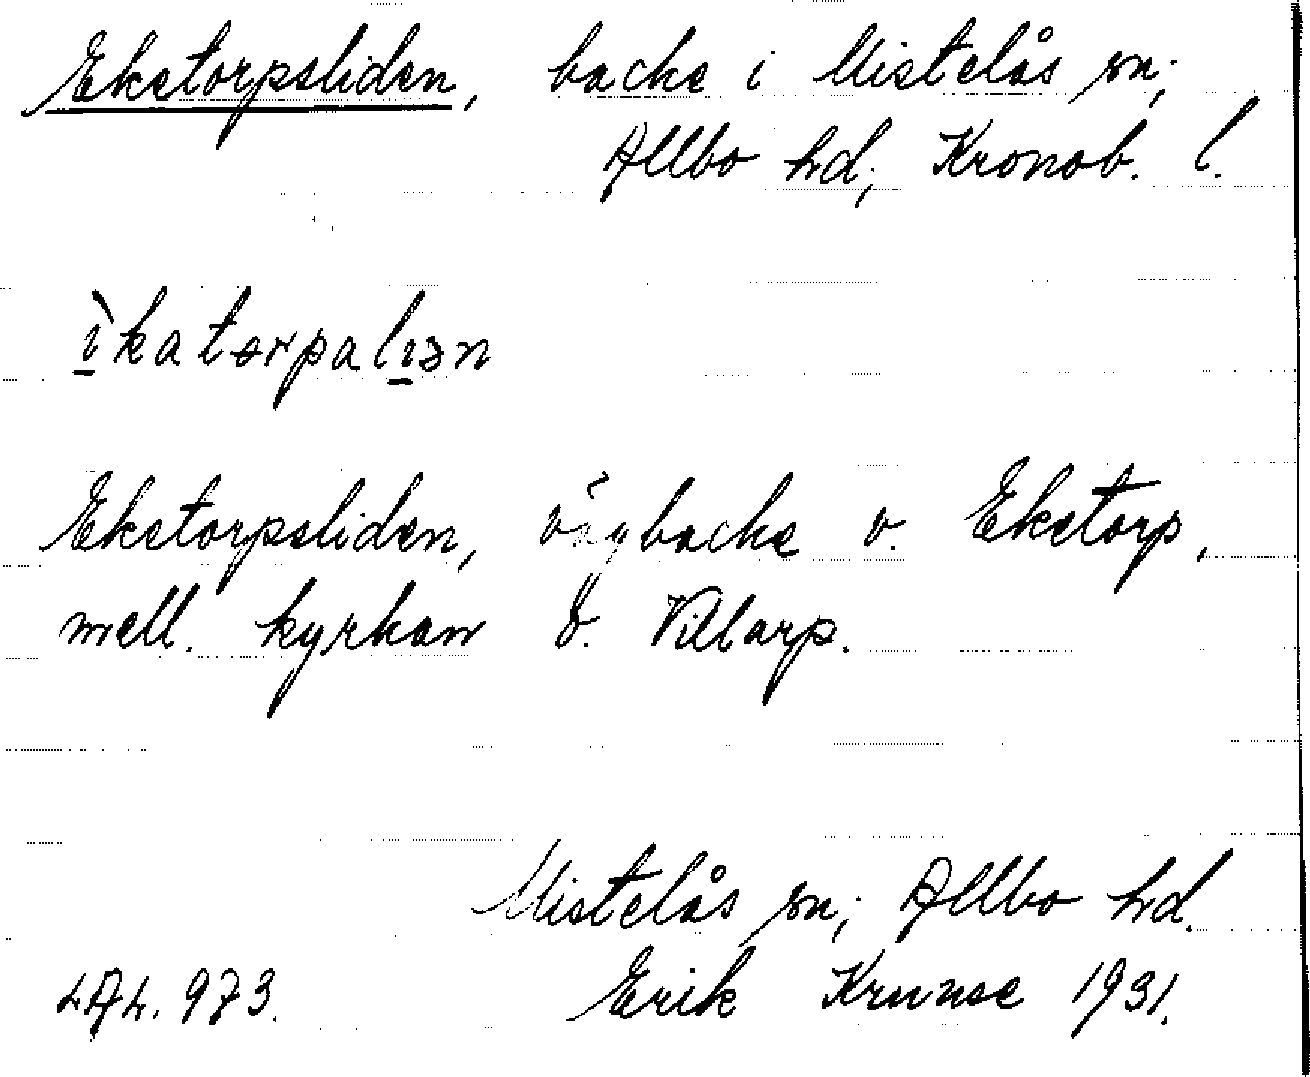 Ekstorpsliden, backe i Mistelås sn;
Allbo hd; Kronob. l.
ìkatɵrpalıən
Ekstorpsliden, vägbacke v. Ekstorp,
mell. kyrkan o. Vittarp.
Mistelås sn; Allbo hd.
LAL. 973. Erik Kruuse 1931.